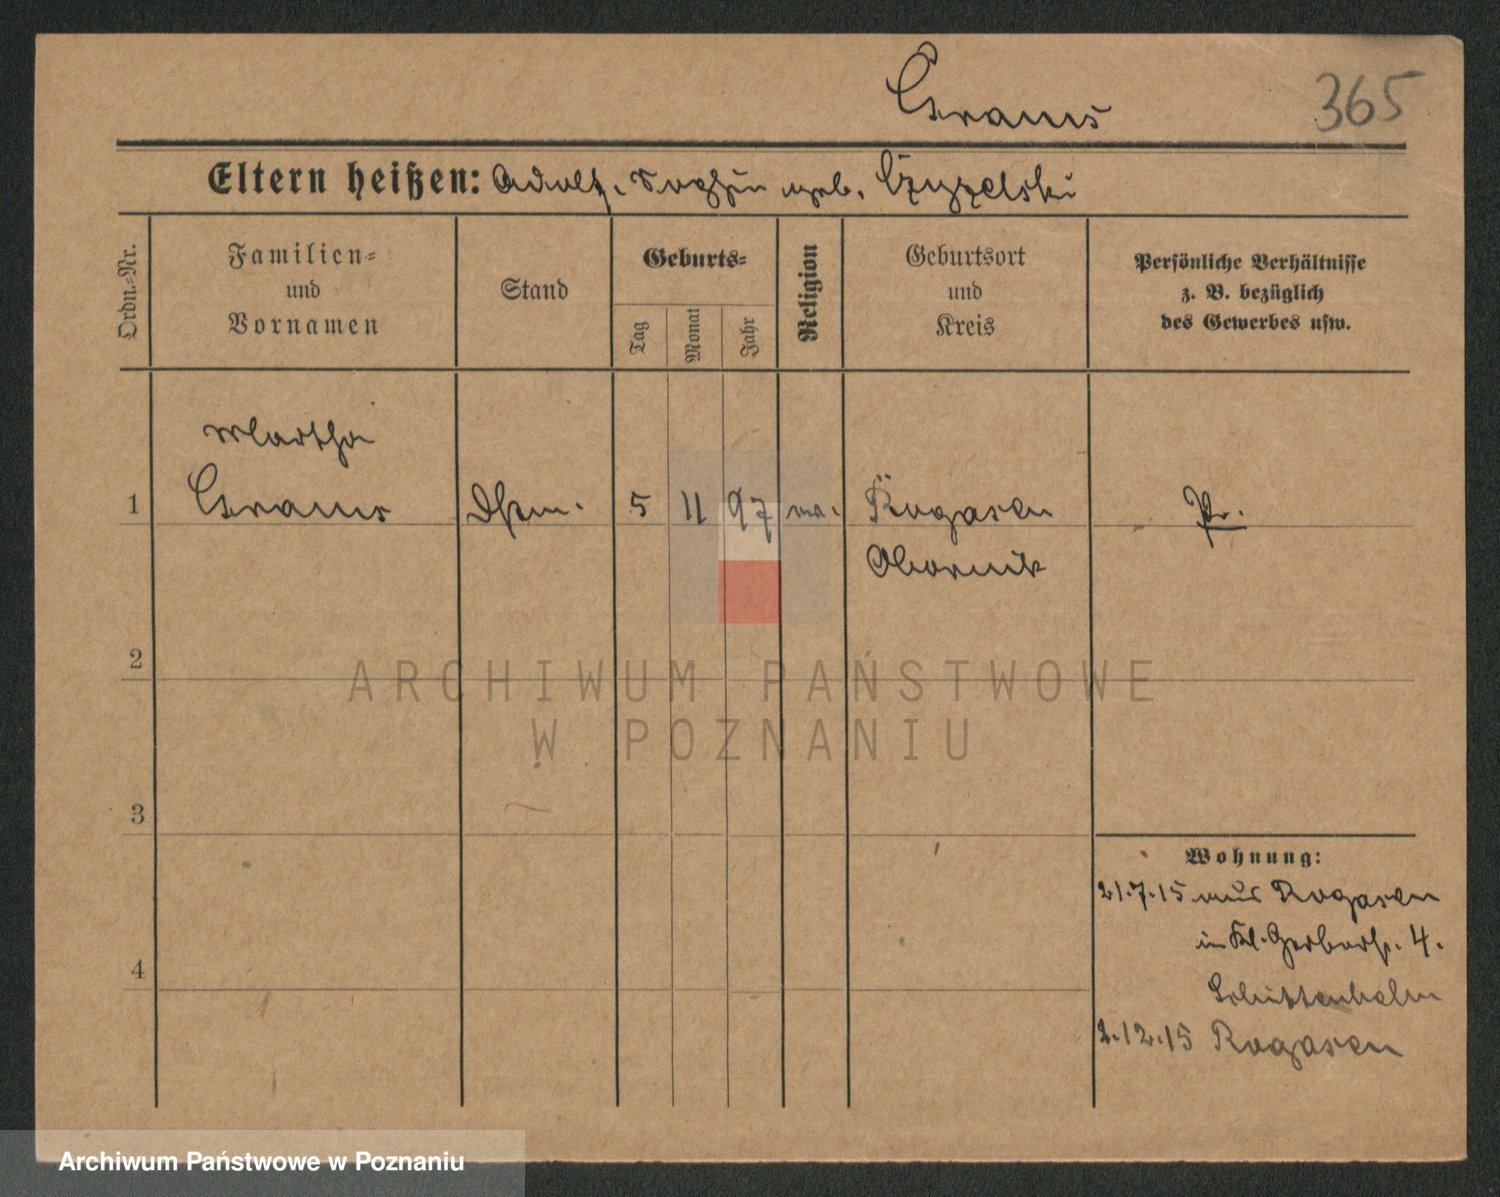 Grams
365
Eltern heißen: Adolf, Sophie geb. Czyzelski
Ordn.-Nr.
Familien-
und
Vornamen
Stand
Geburts-
Tag
Monat
Jahr
Religion
Geburtsort
und
Kreis
Persönliche Verhältnisse
z. B. bezüglich
des Gewerbes usw.
Martha
1 Grams 5 11 97 Rogasen Pr.
Obornik
2
3
4
Wohnung:
21.7.15 aus Rogasen
in Kl. Gerberstr. 4.
Schittenhelm
2.12.15 Rogasen
ARCHIWUM PAŃSTWOWE
W POZNANIU
Archiwum Państwowe w Poznaniu